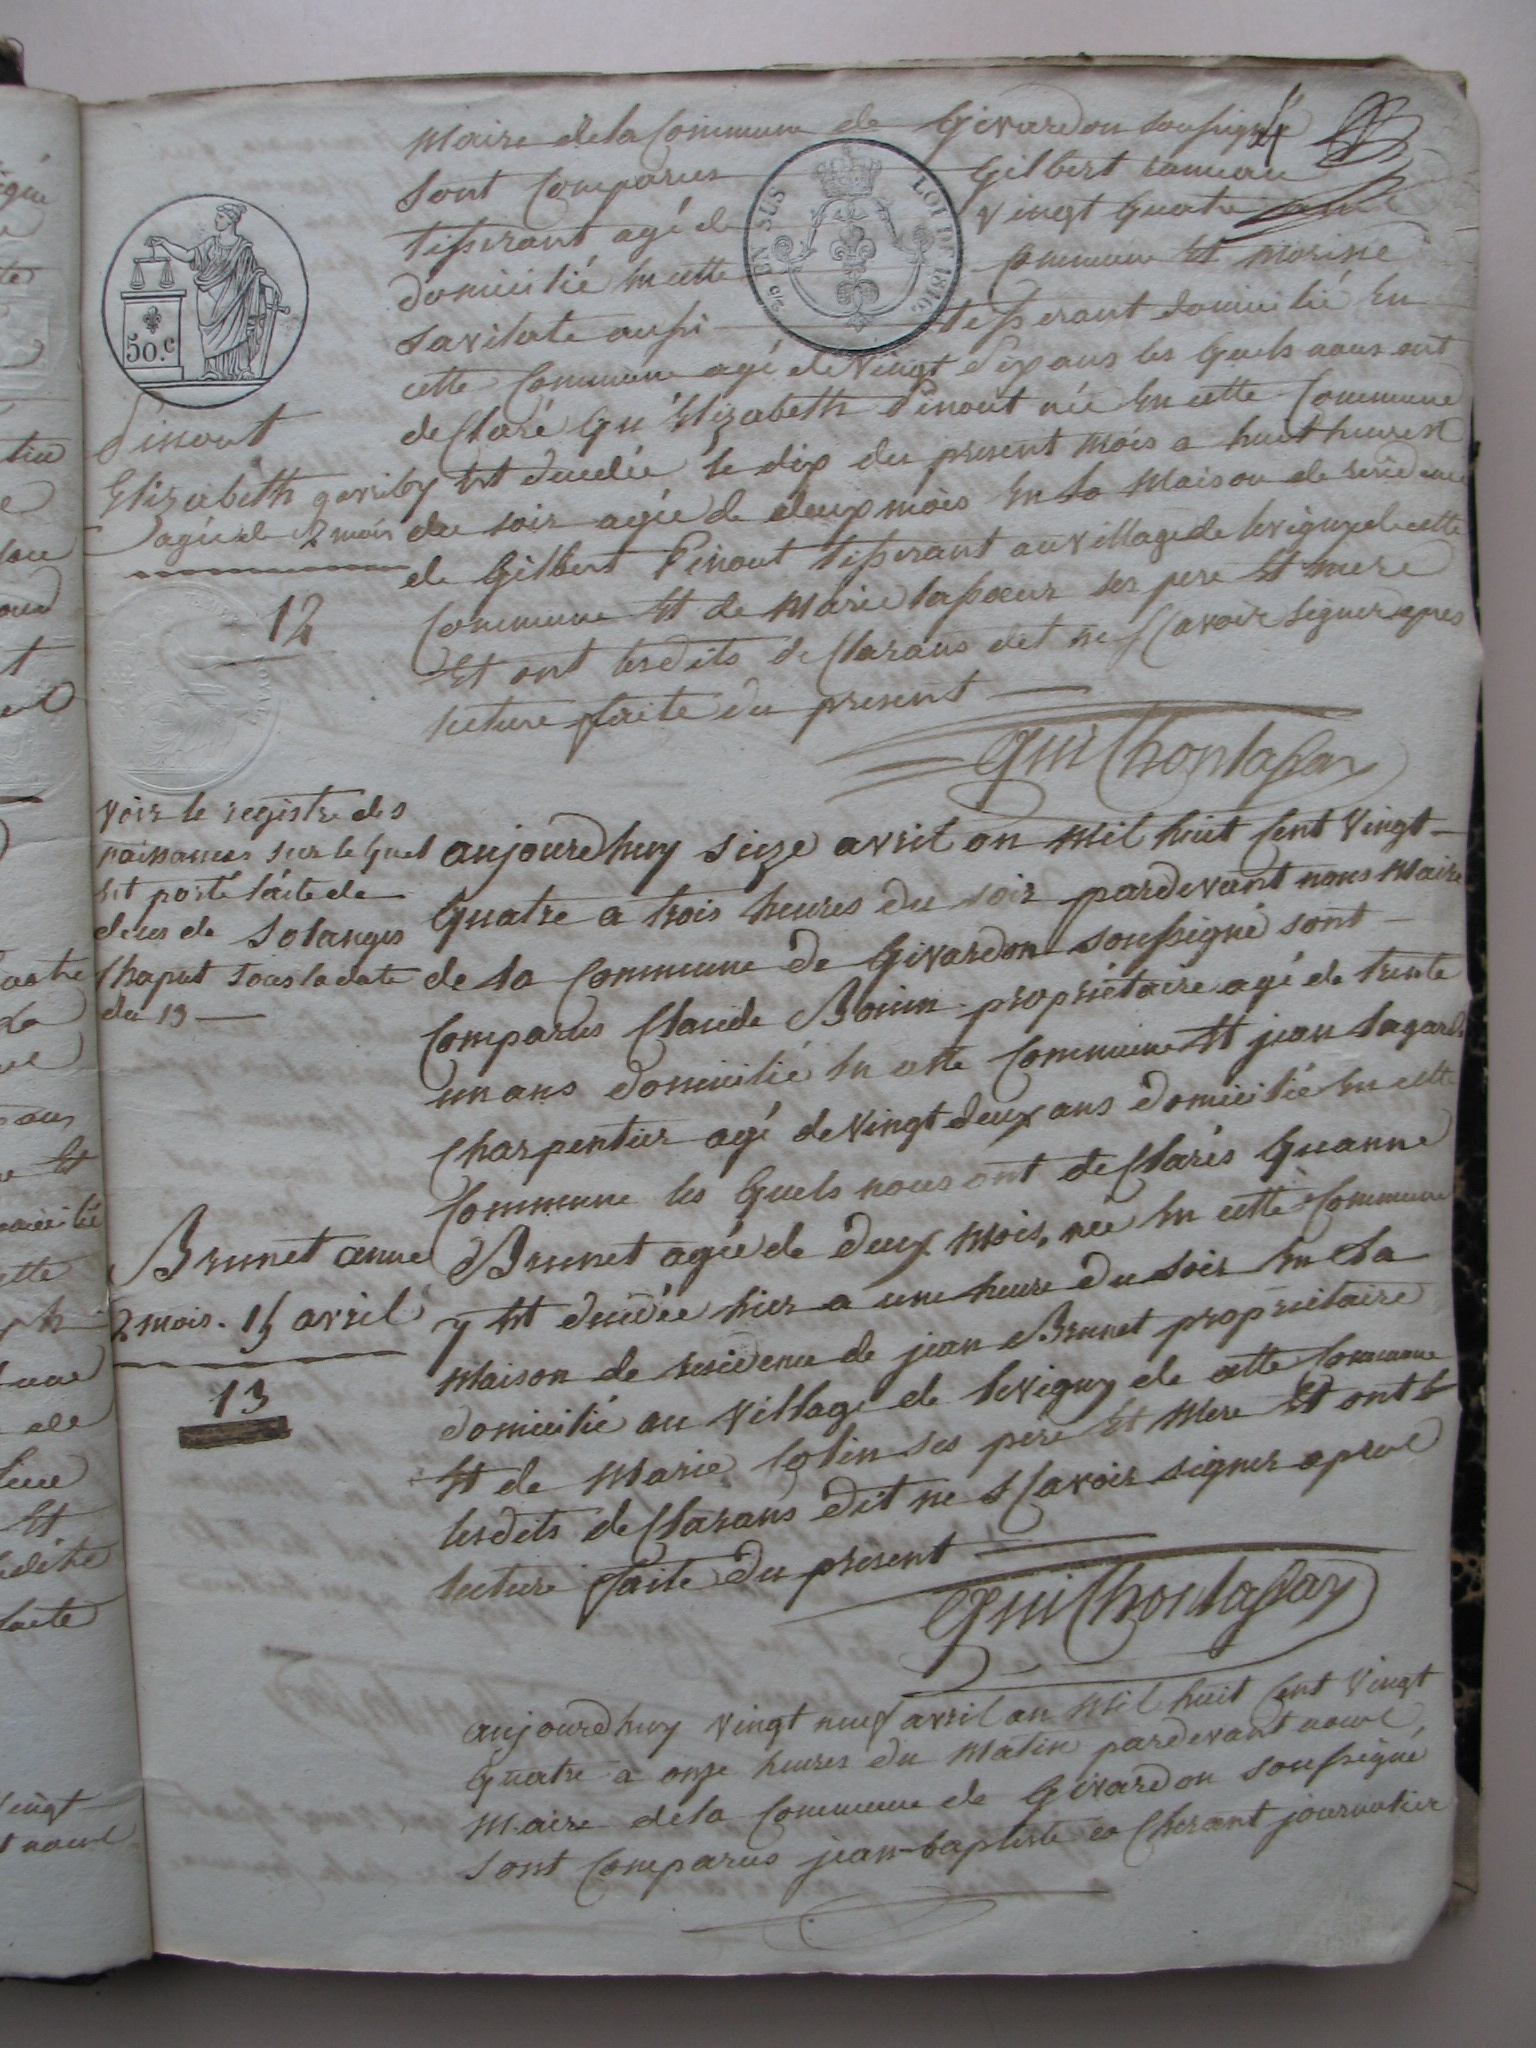 maire de la Commune de Givardon soussigné
sont Comparus Gilbert rameau
tisserant agé de vingt quatre ans
domicilié en cette Commune Et
aussi tisserant domicilié En
cette Commune agé de vingt six ans les quels nous ont
déclaré qu'Elizabeth Pinout née En cette Commune
Est décédée le dix du present mois a huit heures
du soir agée de deux mois En la maison de residence
de Gilbert Pinout tisserant au village de levigny de cette
Commune Et de Marie lasoeur ses pere Et mere
Et ont lesdits déclarans det ne sçavoir signer apres
lecture faite du present
EN SUS
LOI DE 1816.
50.c
Pinout
Elizabeth
agée de 2 mois
12
voir le registre des
naissances sur le quel
Est porté l'acte de
deces de Solanges
Chaput sous la date
du 13
aujourdhuy seize avril an mil huit Cent Vingt
quatre a trois heures du soir pardevant nous Maire
de la Commune de Givardon soussigné sont
Comparus Claude Bonin propriétaire agé de trente
un ans domicilié En cette Commune Et jean lagarde
Charpentier agé de vingt deux ans domicilié En cette
Commune les quels nous ont déclarés quanne
Brunet agée de deux mois, née En cette Commune
y Est décédée hier a une heure du soir En la
maison de residence de jean Brunet propriétaire
domicilié au village de levigny de cette Commune
Et de Marie Colin ses père Et Mere Et ont
lesdits déclarans dit ne sçavoir signer apres
lecture faite du present
Brunet anne
2 mois. 15 avril
13
aujourdhuy vingt neuf avril an mil huit Cent vingt
quatre a onze heures du matin pardevant nous
maire de la Commune de Givardon soussigné
sont Comparus jean-baptiste journalier